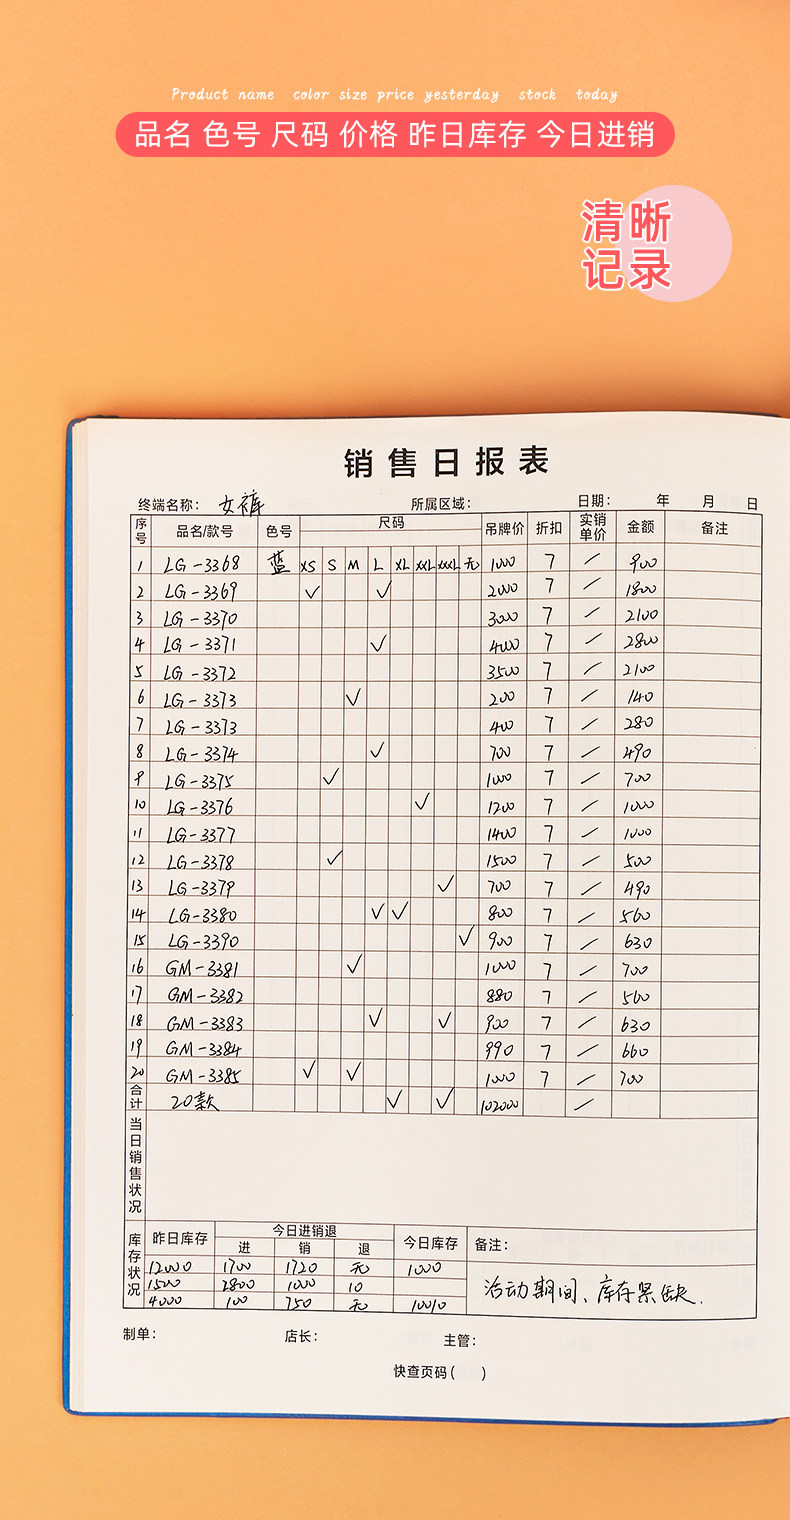 Product name color size price yesterday stock today
品名 色号 尺码 价格 昨日库存 今日进销
清晰
记录
销售日报表
终端名称: 女裤 所属区域: 日期: 年 月 日
序号 品名/款号 色号 尺码 吊牌价 折扣 实销单价 金额 备注
1 LG-3368 蓝 XS S M L XL XXL XXXL 无 1000 7 / 900
2 LG-3369 ✓ ✓ 2000 7 / 1800
3 LG-3370 3000 7 / 2100
4 LG-3371 ✓ 4000 7 / 2800
5 LG-3372 3500 7 / 2100
6 LG-3373 ✓ 200 7 / 140
7 LG-3373 400 7 / 280
8 LG-3374 ✓ 700 7 / 490
9 LG-3375 ✓ 1000 7 / 700
10 LG-3376 ✓ 1200 7 / 1000
11 LG-3377 1400 7 / 1000
12 LG-3378 ✓ 1500 7 / 500
13 LG-3379 ✓ 700 7 / 490
14 LG-3380 ✓ ✓ 800 7 / 560
15 LG-3390 ✓ 900 7 / 630
16 GM-3381 ✓ 1000 7 / 700
17 GM-3382 880 7 / 560
18 GM-3383 ✓ ✓ 900 7 / 630
19 GM-3384 990 7 / 660
20 GM-3385 ✓ ✓ 1000 7 / 700
合计 20款 ✓ ✓ 102000 /
当日销售状况
库存状况 昨日库存 今日进销退 今日库存 备注:
进 销 退
12000 1700 1720 无 1000
1500 2800 1000 10
4000 100 750 无 10010
活动期间、库存紧缺.
制单: 店长: 主管:
快查页码( )